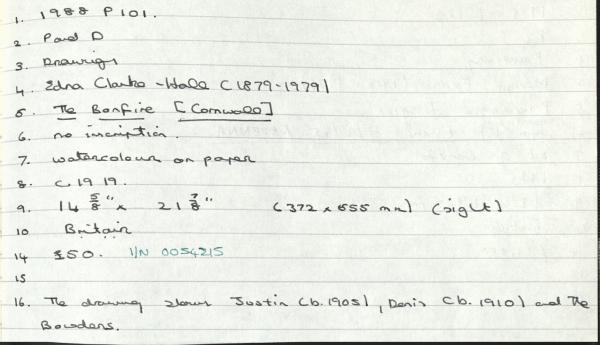 1. 1988 P101.
2. P and D
3. Drawings
4. Edna Clarke-Hall (1879-1979)
5. The Bonfire [Cornwall]
6. no inscription.
7. watercolour on paper
8. c. 1919.
9. 14 5/8" x 21 7/8" (372 x 555 mm) (sight)
10 Britain
14 £50. I/N 0054215
15
16. The drawing shows Justin (b. 1905), Denis (b. 1910) and The
Bowdens.